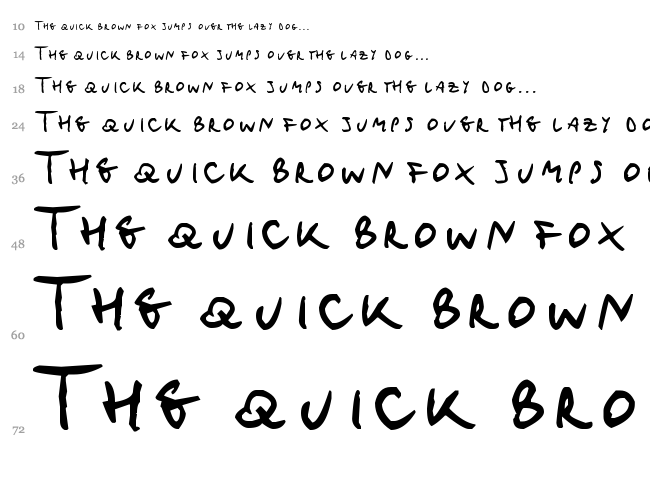 10 THE QUICK BROWN FOX JUMPS OVER THE LAZY DOG...
14 THE QUICK BROWN FOX JUMPS OVER THE LAZY DOG...
18 THE QUICK BROWN FOX JUMPS OVER THE LAZY DOG...
24 THE QUICK BROWN FOX JUMPS OVER THE LAZY DO
36 THE QUICK BROWN FOX JUMPS O
48 THE QUICK BROWN FOX
60 THE QUICK BROWN
72 THE QUICK BRO